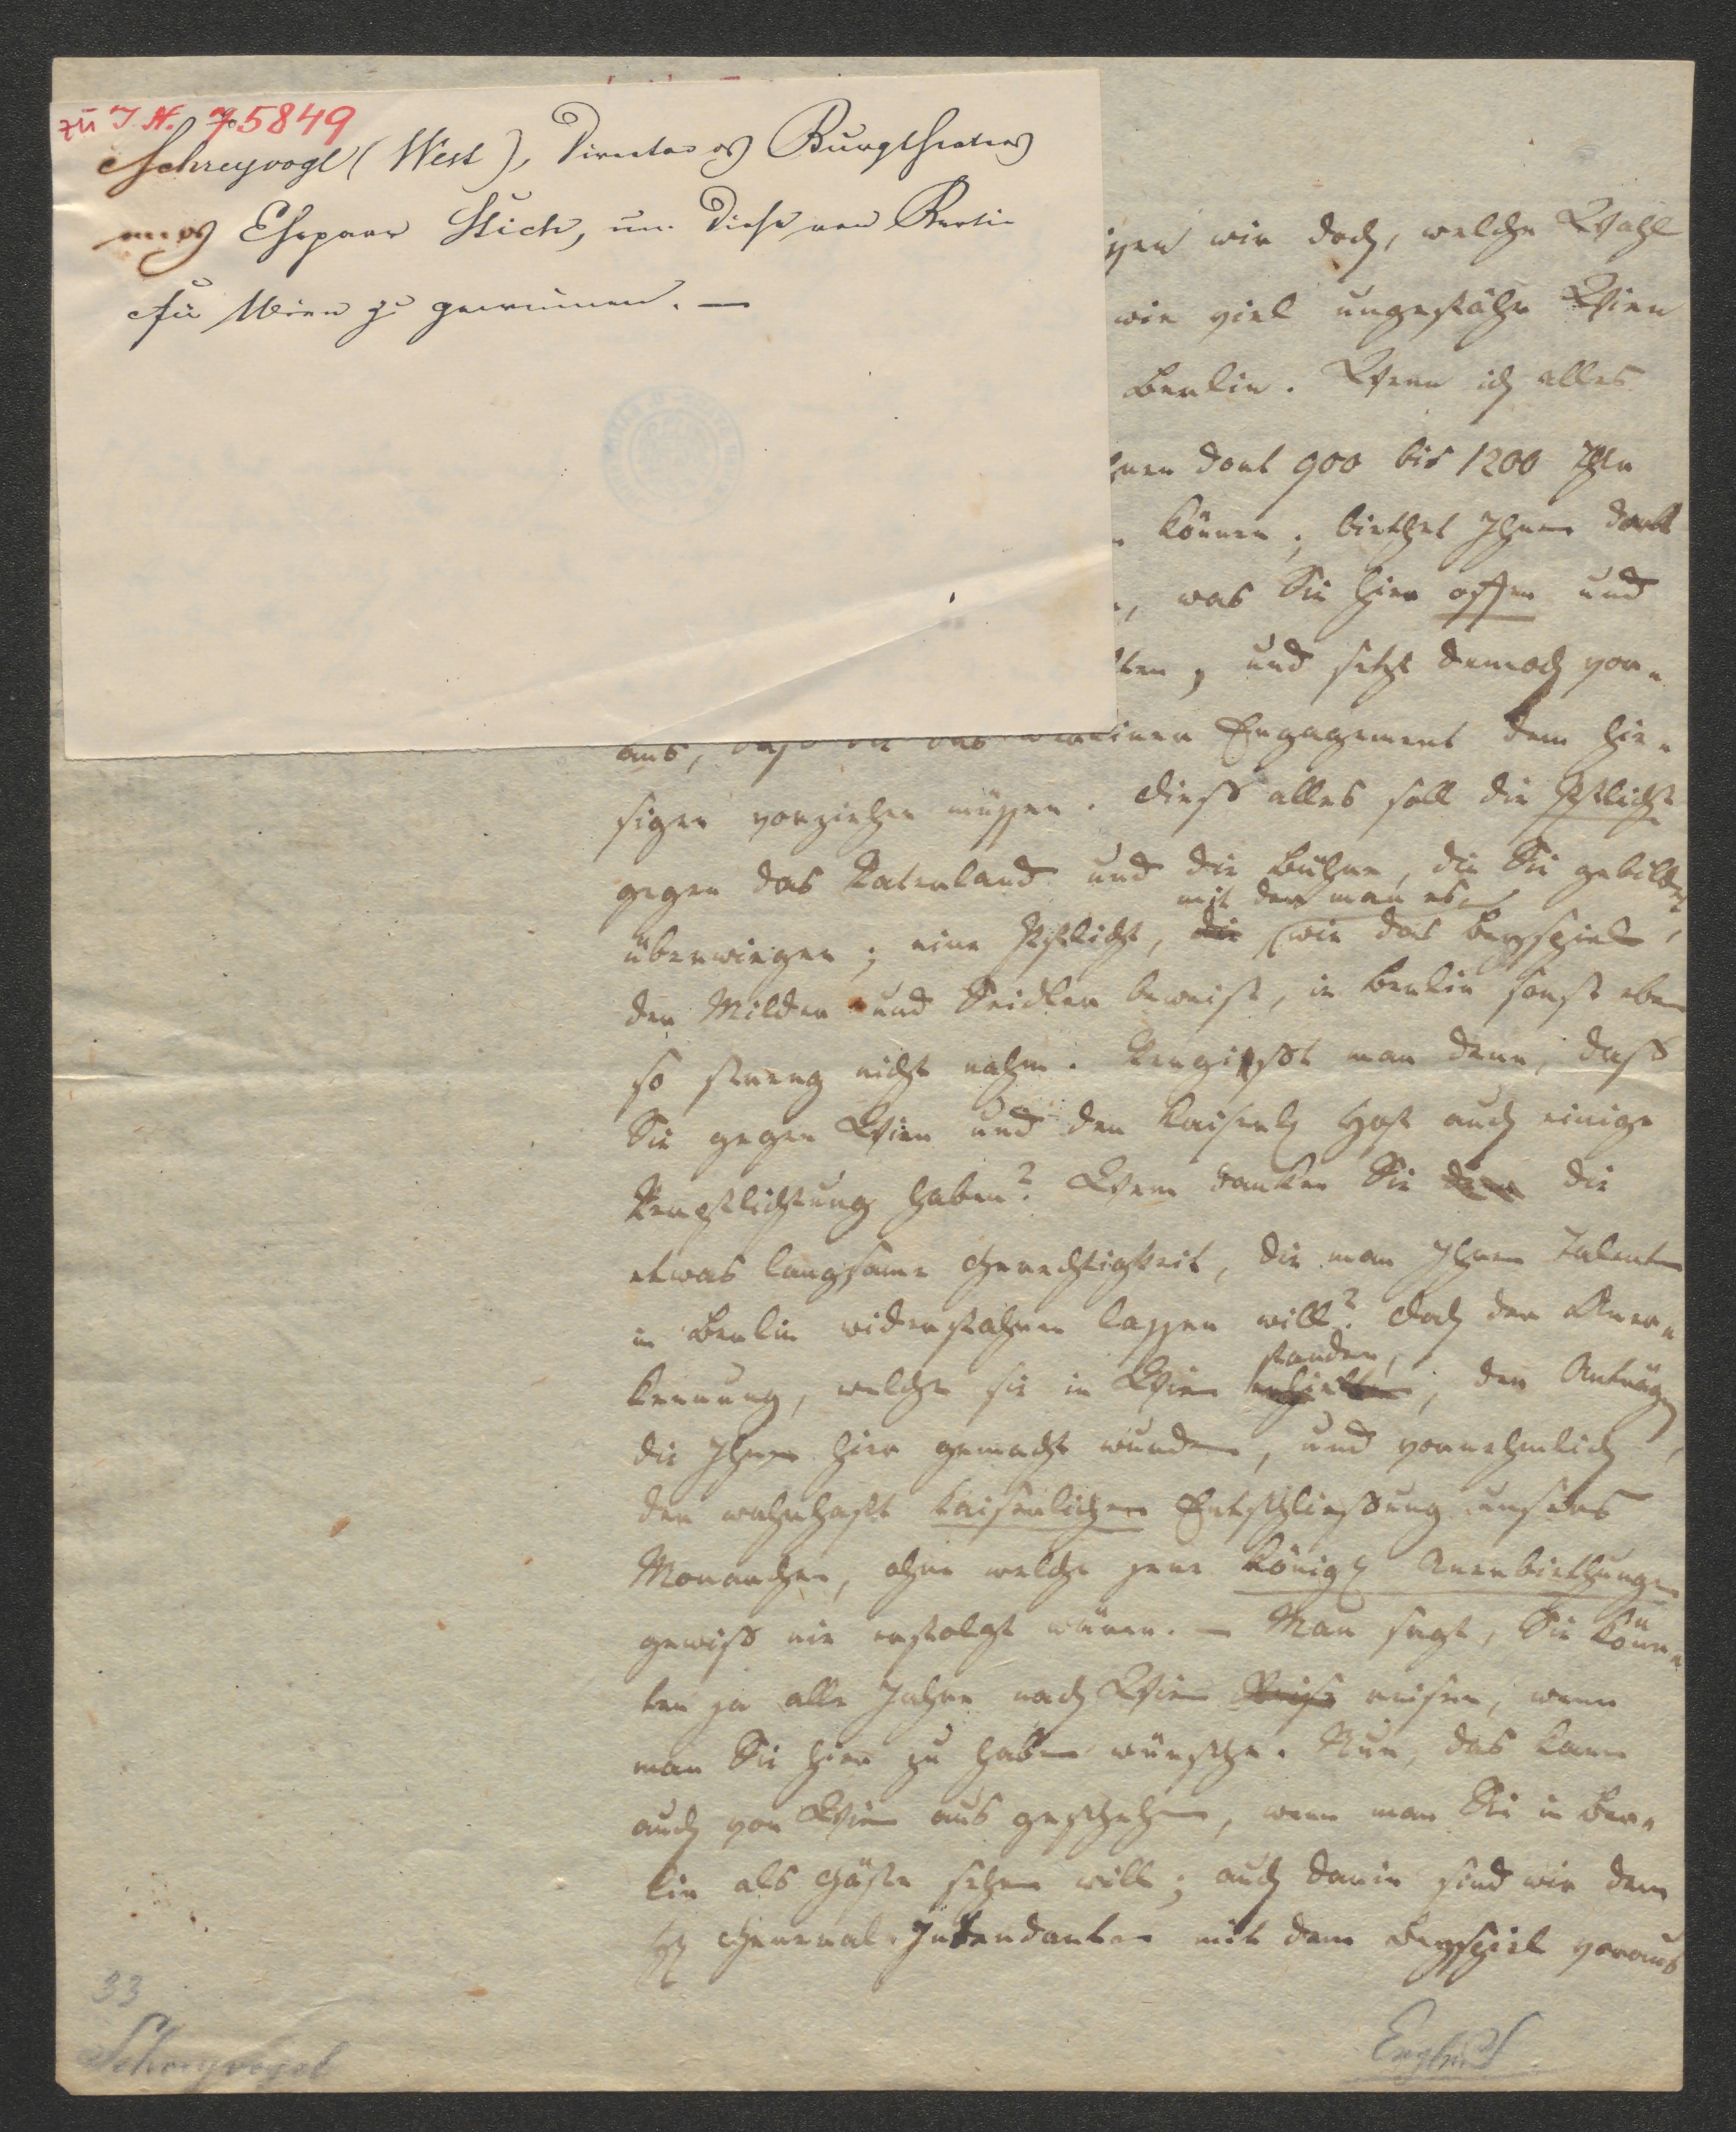 zu I. N. 75849
Schreyvogl (West), Director des Burgtheaters
an das Ehepaar Stich, um diese von Berlin
für Wien zu gewinnen. —
wir doch, welche Wahl
wie viel ungefähr Wien
Berlin. Wenn ich alles
dort 900 bis 1200 Thlr
können; biethet Ihnen dort
, was Sie hier offen und
, und setzt demach vor-
aus, daß Engagement dem hie-
sigen vorziehen müssen. Dieß alles soll die Pflicht
gegen das Vaterland und die Bühne, die Sie gebildet,
mit der man es,
überwiegen; eine Pflicht, die (wie das Beyspiel
der Milder und Seidler beweist, in Berlin sonst eben
so streng nicht nahm. Vergißt man denn, daß
Sie gegen Wien und den Kaiserl Hof auch einige
Verpflichtung haben? Wem danken Sie denn die
etwas langsame Gerechtigkeit, die man Ihren Talenten
in Berlin widerfahren lassen will? Doch der Aner-
fanden,
kennung, welche sie in Wien erhielten, den Anträgen,
die Ihnen hier gemacht wurden, und vornehmlich
der wahrhaft kaiserlichen Entschließung unsers
Monarchen, ohne welche jene königl Anerbiethungen
gewiß nie erfolgt wären. — Man sagt, Sie könn-
ten ja alle Jahre nach Wien Reise reisen, wenn
man Sie hier zu haben wünsche. Nun, das kann
auch von Wien aus geschehen, wenn man Sie in Ber-
lin als Gäste sehen will; auch darin sind wir dem
H General-Intendanten mit dem Beyspiel voraus
33
Schreyvogel